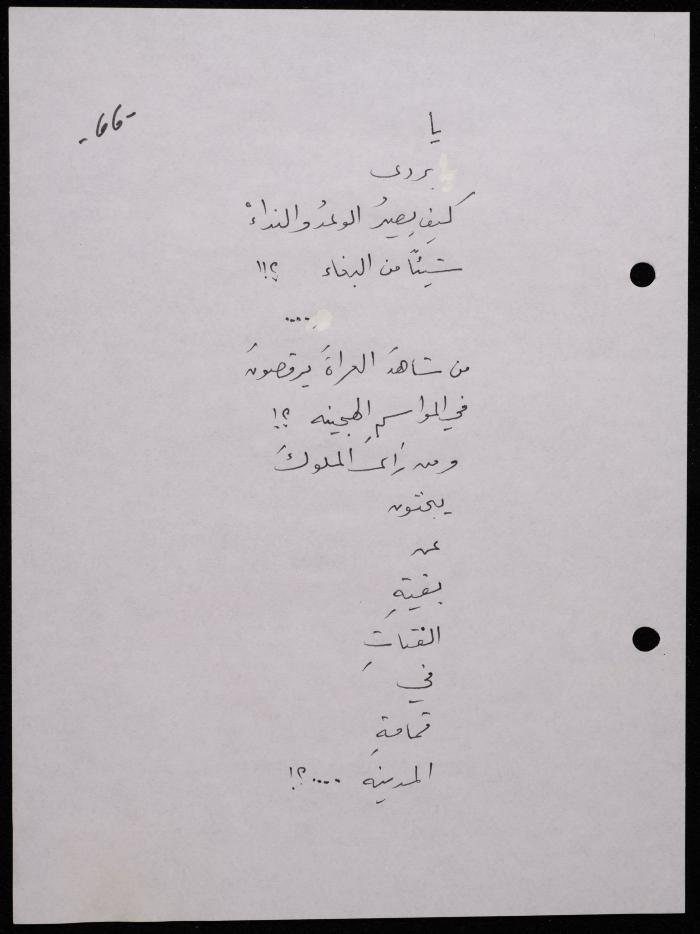 -٦٦-
يا
بردى
كيفَ يصيرُ الوعدُ والنداءْ
شيئًا من البغاء ؟!!
....
من شاهدَ العراةَ يرقصونَ
في المواسمِ الهجينه ؟!
ومن رَأى الملوكَ
يبحثون
عن
بقيةِ
الفتاتِ
في
قمامةِ
المدينه ....؟!